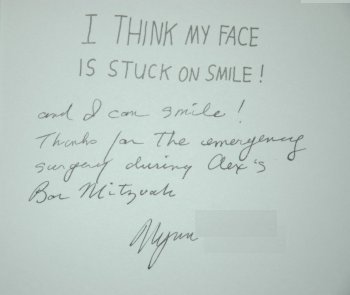 I THINK MY FACE
IS STUCK ON SMILE!
and I can smile!
Thanks for the emergency
surgery during Alex's
Bar Mitzvah